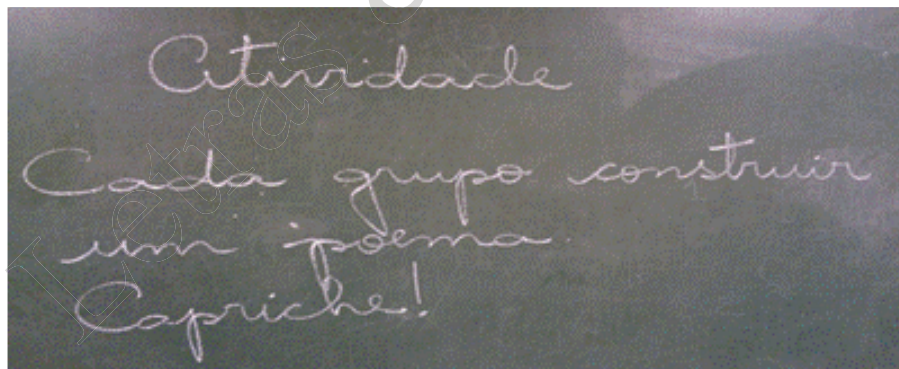 Atividade
Cada grupo construir
um poema
Capriche!